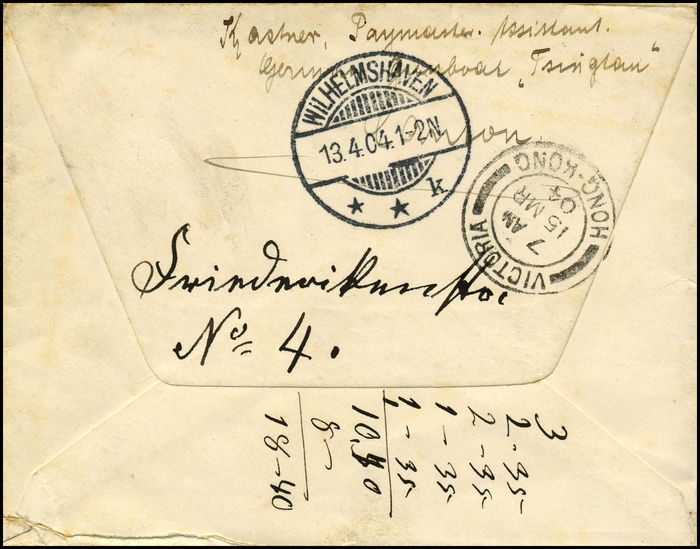 Kastner, Paymaster. Assistant.
German Gunboat „Tsingtau"
Canton.
WILHELMSHAVEN
13.4.04.1-2N.
* * k
VICTORIA
HONG-KONG
7 AM
15 MR
04
Friederikenstr.
No 4.
3
2-35
2-35
1-35
1-35
10,40
8-
18-40